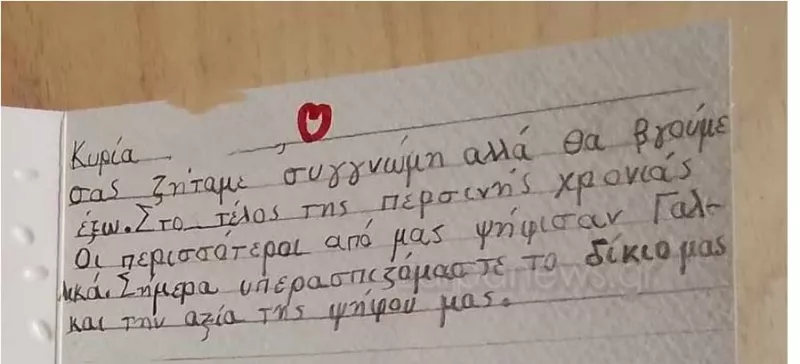 Κυρία ,
σας ζητάμε συγγνώμη αλλά θα βγούμε
έξω. Στο τέλος της περσινής χρονιάς
οι περισσότεροι από μας ψήφισαν Γαλ-
λικά. Σήμερα υπερασπιζόμαστε το δίκιο μας
και την αξία της ψήφου μας.